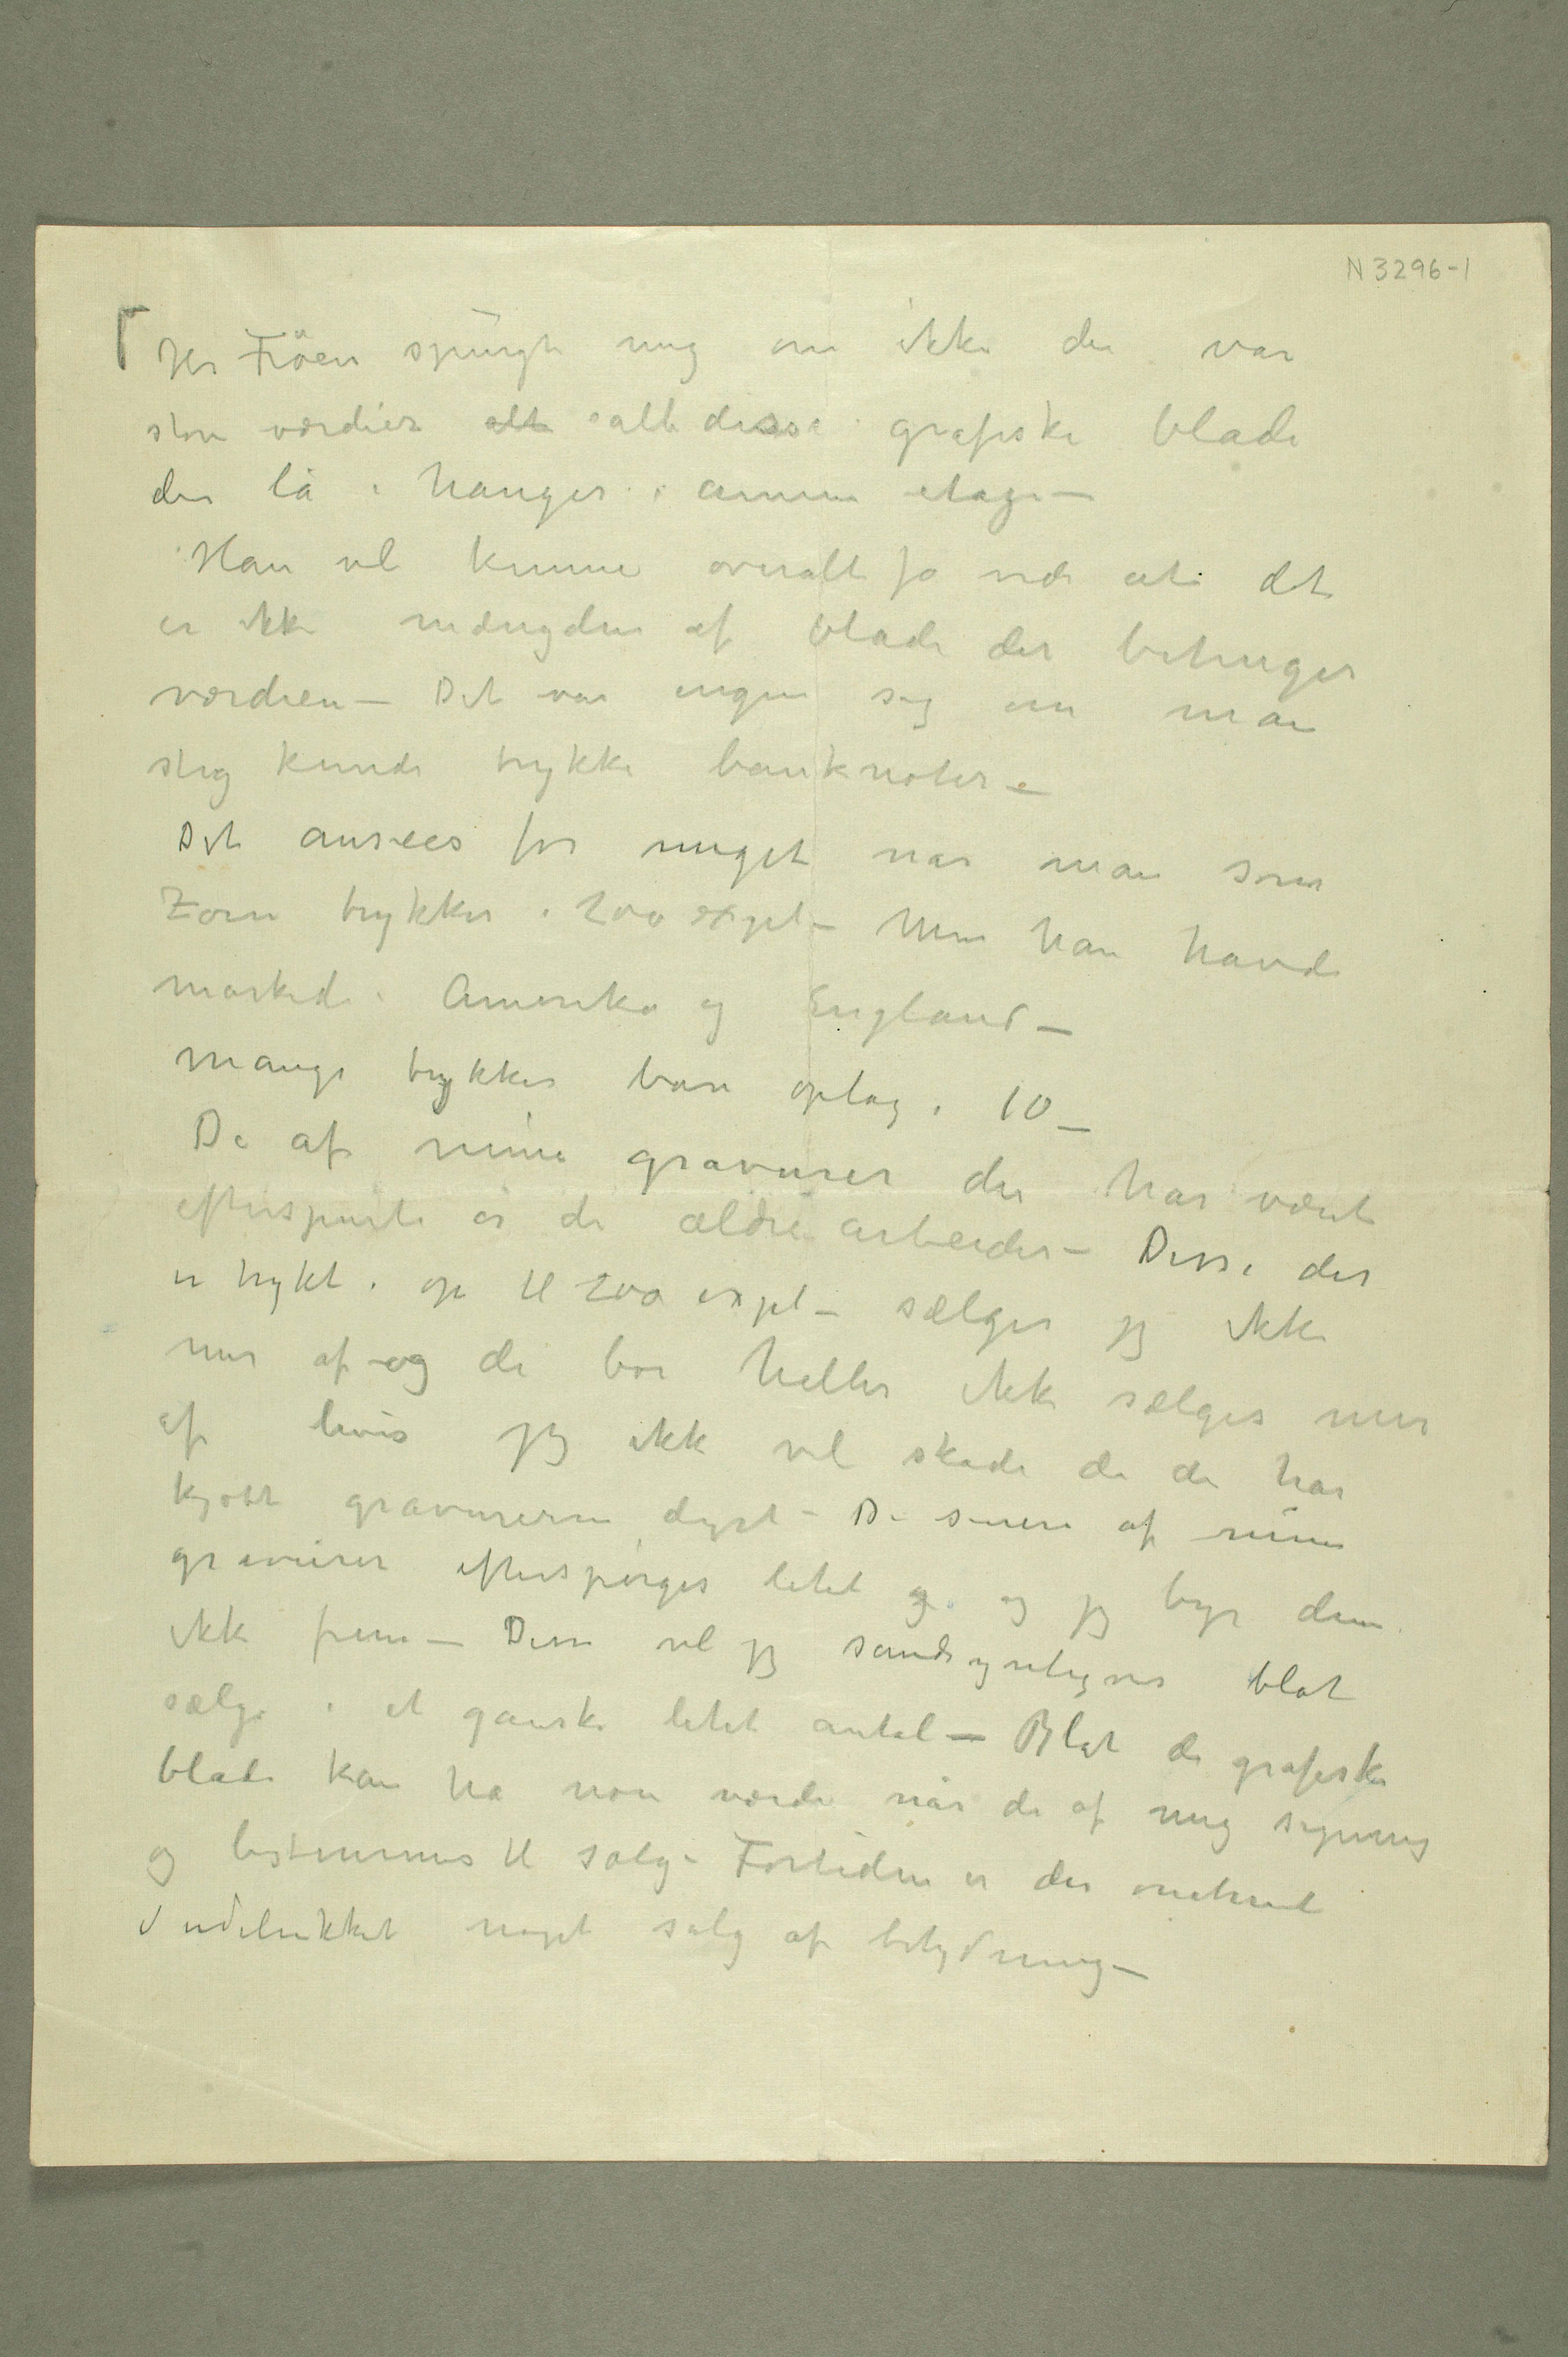 N 3296-1
Hr Fröen spurgte mig om ikke der var
store værdier alle i alle disse grafiske blade
der lå i hauger i annen etage –
Han vil kunne overalt få vide at det
er ikke mængden af blade der betinger
værdien – Det var ingen sag om man
slig kunde trykke banknoter –
Det ansees for meget når man som
Zorn trykker i 200 expl – Men han havde
marked i Amerika og England –
Mange trykker bare oplag i 10 –
De af mine gravurer der har været
efterspurte er de ældre arbeider – Disse der
er trykt i op til 200 expl – sælger jeg ikke
mer af og de bør heller ikke sælges mer
af hvis jeg ikke vil skade de der har
kjøbt gravurerne dyrt – De senere af mine
gravurer efterspørges litet og og jeg byr dem
ikke frem – Disse vil jeg sandsynligvis blot
sælge i et ganske litet antal – Blot de grafiske
blade kan ha noen værdi når de af mig signeres
og bestemmes til salg – Fortiden er der omtrent
udelukket noget salg af betydning –